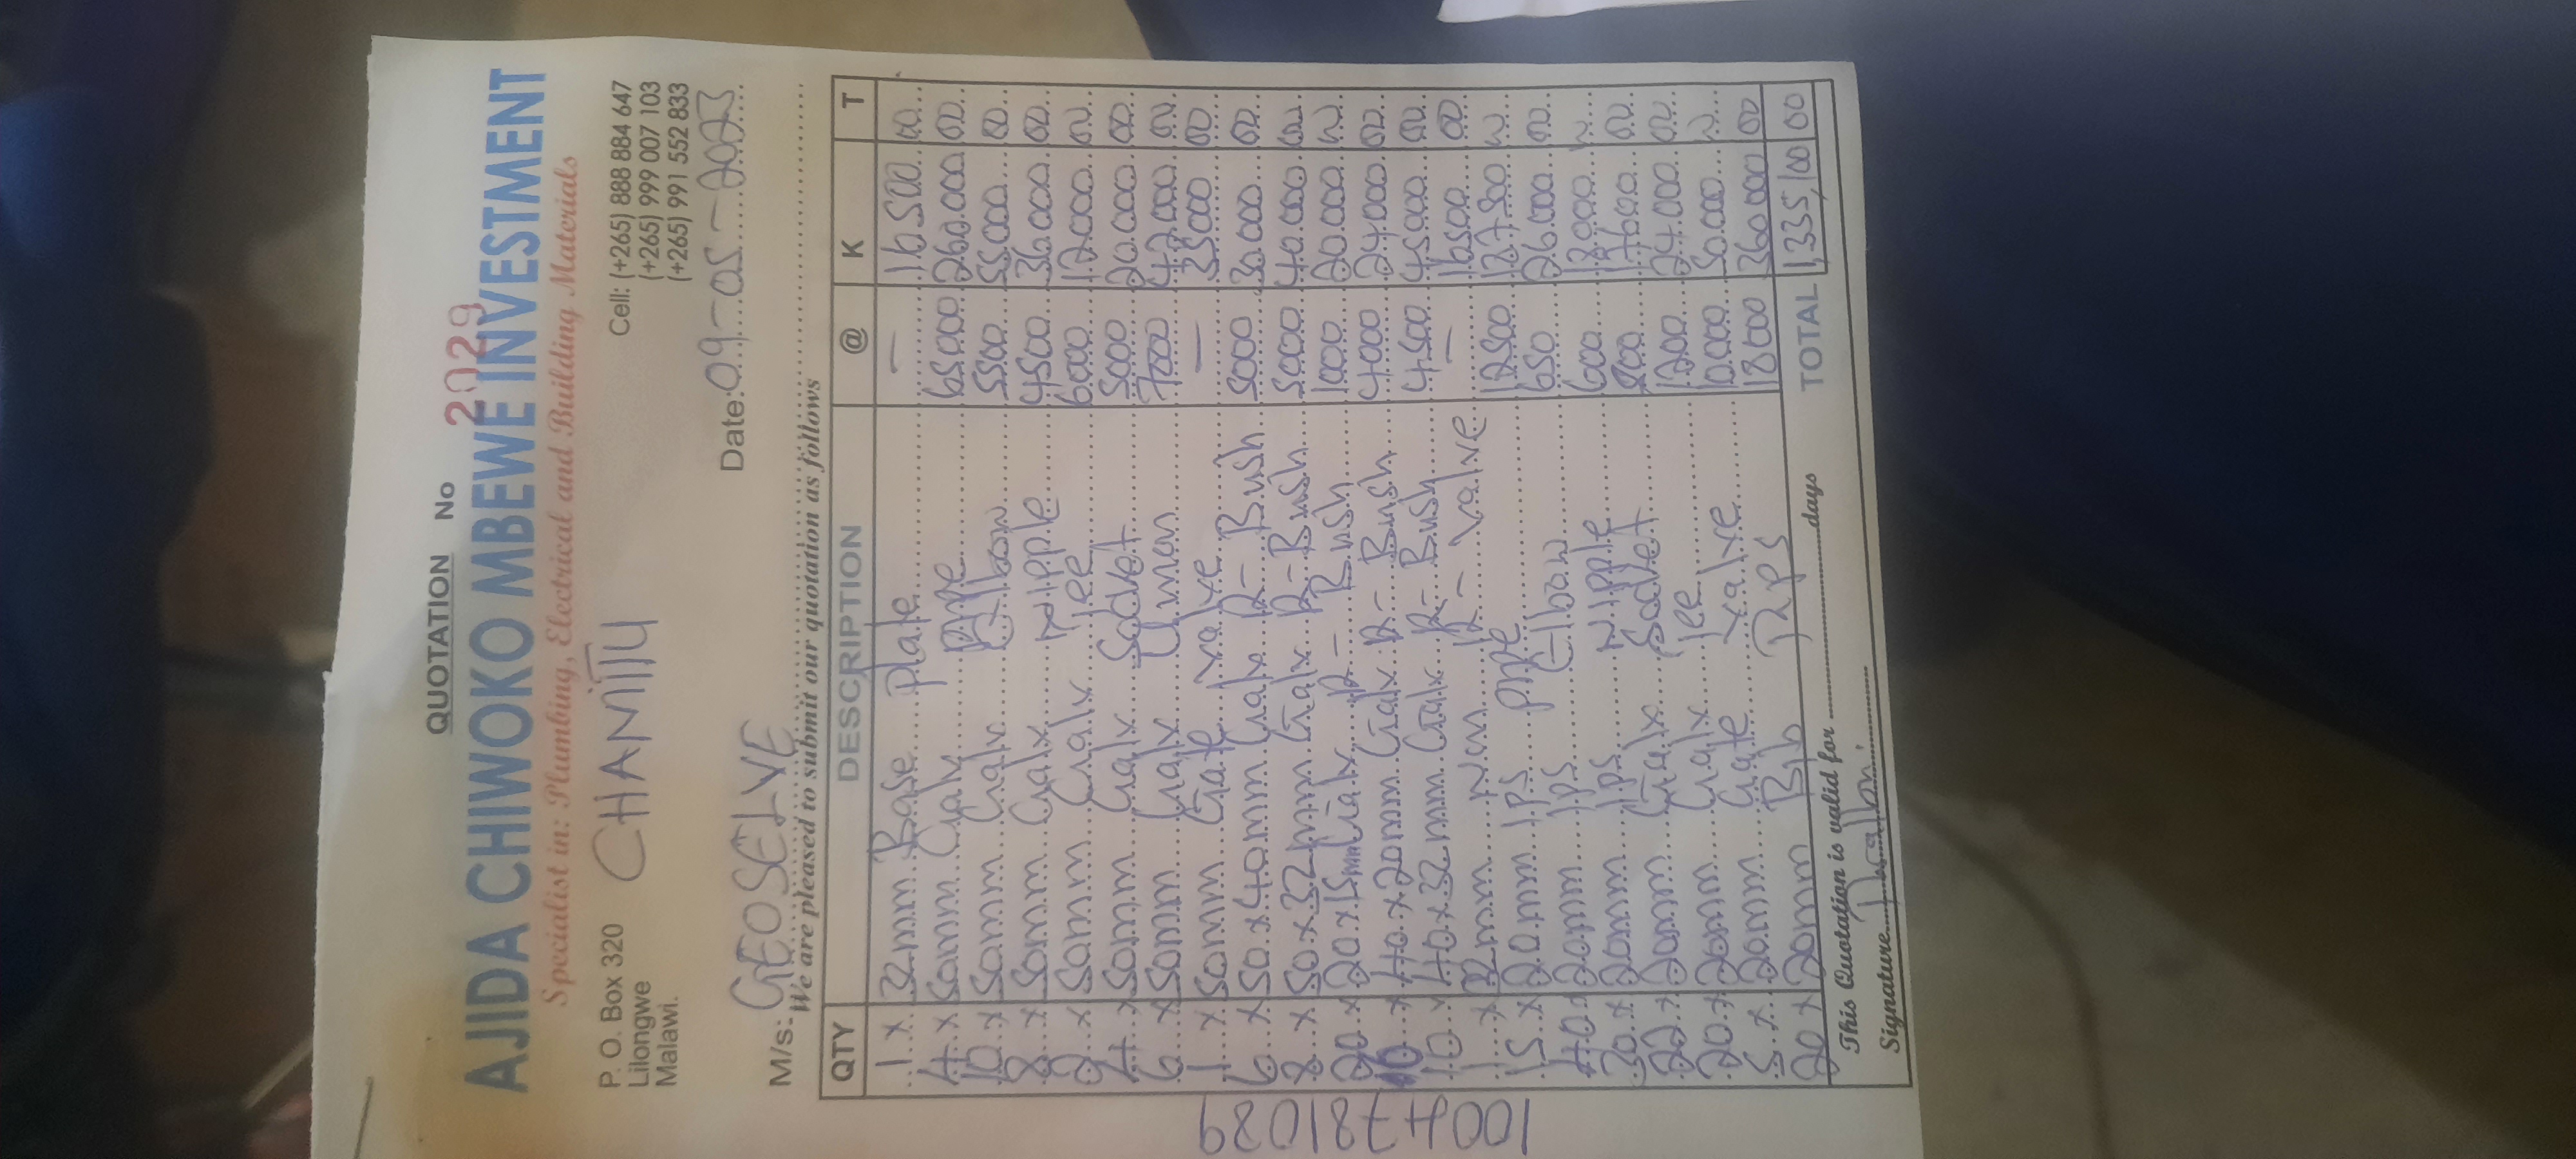 QUOTATION No 2029
AJIDA CHIWOKO MBEWE INVESTMENT
Specialist in: Plumbing, Electrical and Building Materials
P. O. Box 320
Lilongwe
Malawi.
CHAMITU
Cell: (+265) 888 884 647
(+265) 999 007 103
(+265) 991 552 833
Date: 09-05-2023
M/s: GEOSELVE
We are pleased to submit our quotation as follows
QTY DESCRIPTION @ K T
1 x 32mm Base plate — 16500 00
4 x 50mm Galv pipe 65000 260.000 00
10 x 50mm Galv Elbow 5500 55.000 00
8 x 50mm Galv Nipple 4500 36.000 00
2 x 50mm Galv Tee 6000 12.000 00
4 x 50mm Galv Socket 5000 20.000 00
6 x 50mm Galv Union 7000 42.000 00
1 x 50mm Gate valve — 35000 00
6 x 50x40mm Galv R-Bush 5000 30.000 00
8 x 50x32mm Galv R-Bush 5000 40.000 00
20 x 20x15mm Galv R-Bush 1000 20.000 00
10 x 40x20mm Galv R-Bush 4000 24.000 00
10 x 40x32mm Galv R-Bush 4.500 45000 00
1 x 32mm Non R-valve — 16500 00
15 x 20mm Ips pipe 12500 187500 00
40 x 20mm Ips Elbow 650 26.000 00
30 x 20mm Ips Nipple 600 18.000 00
22 x 20mm Galv Socket 800 17600 00
20 x 20mm Galv Tee 1200 24.000 00
5 x 20mm Gate valve 10.000 50.000 00
20 x 20mm Bib Taps 18000 360000 00
TOTAL 1,335,100 00
This Quotation is valid for ........ days
Signature
1004781089